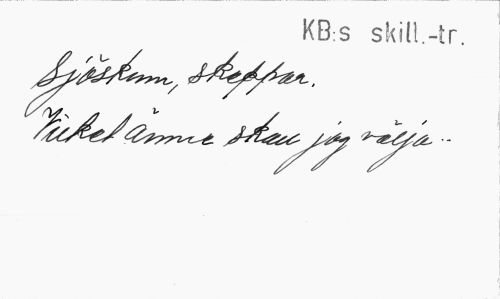 KB:s skill.-tr.
Sjöskum, skeppar.
Vilket ämne skall jag välja--